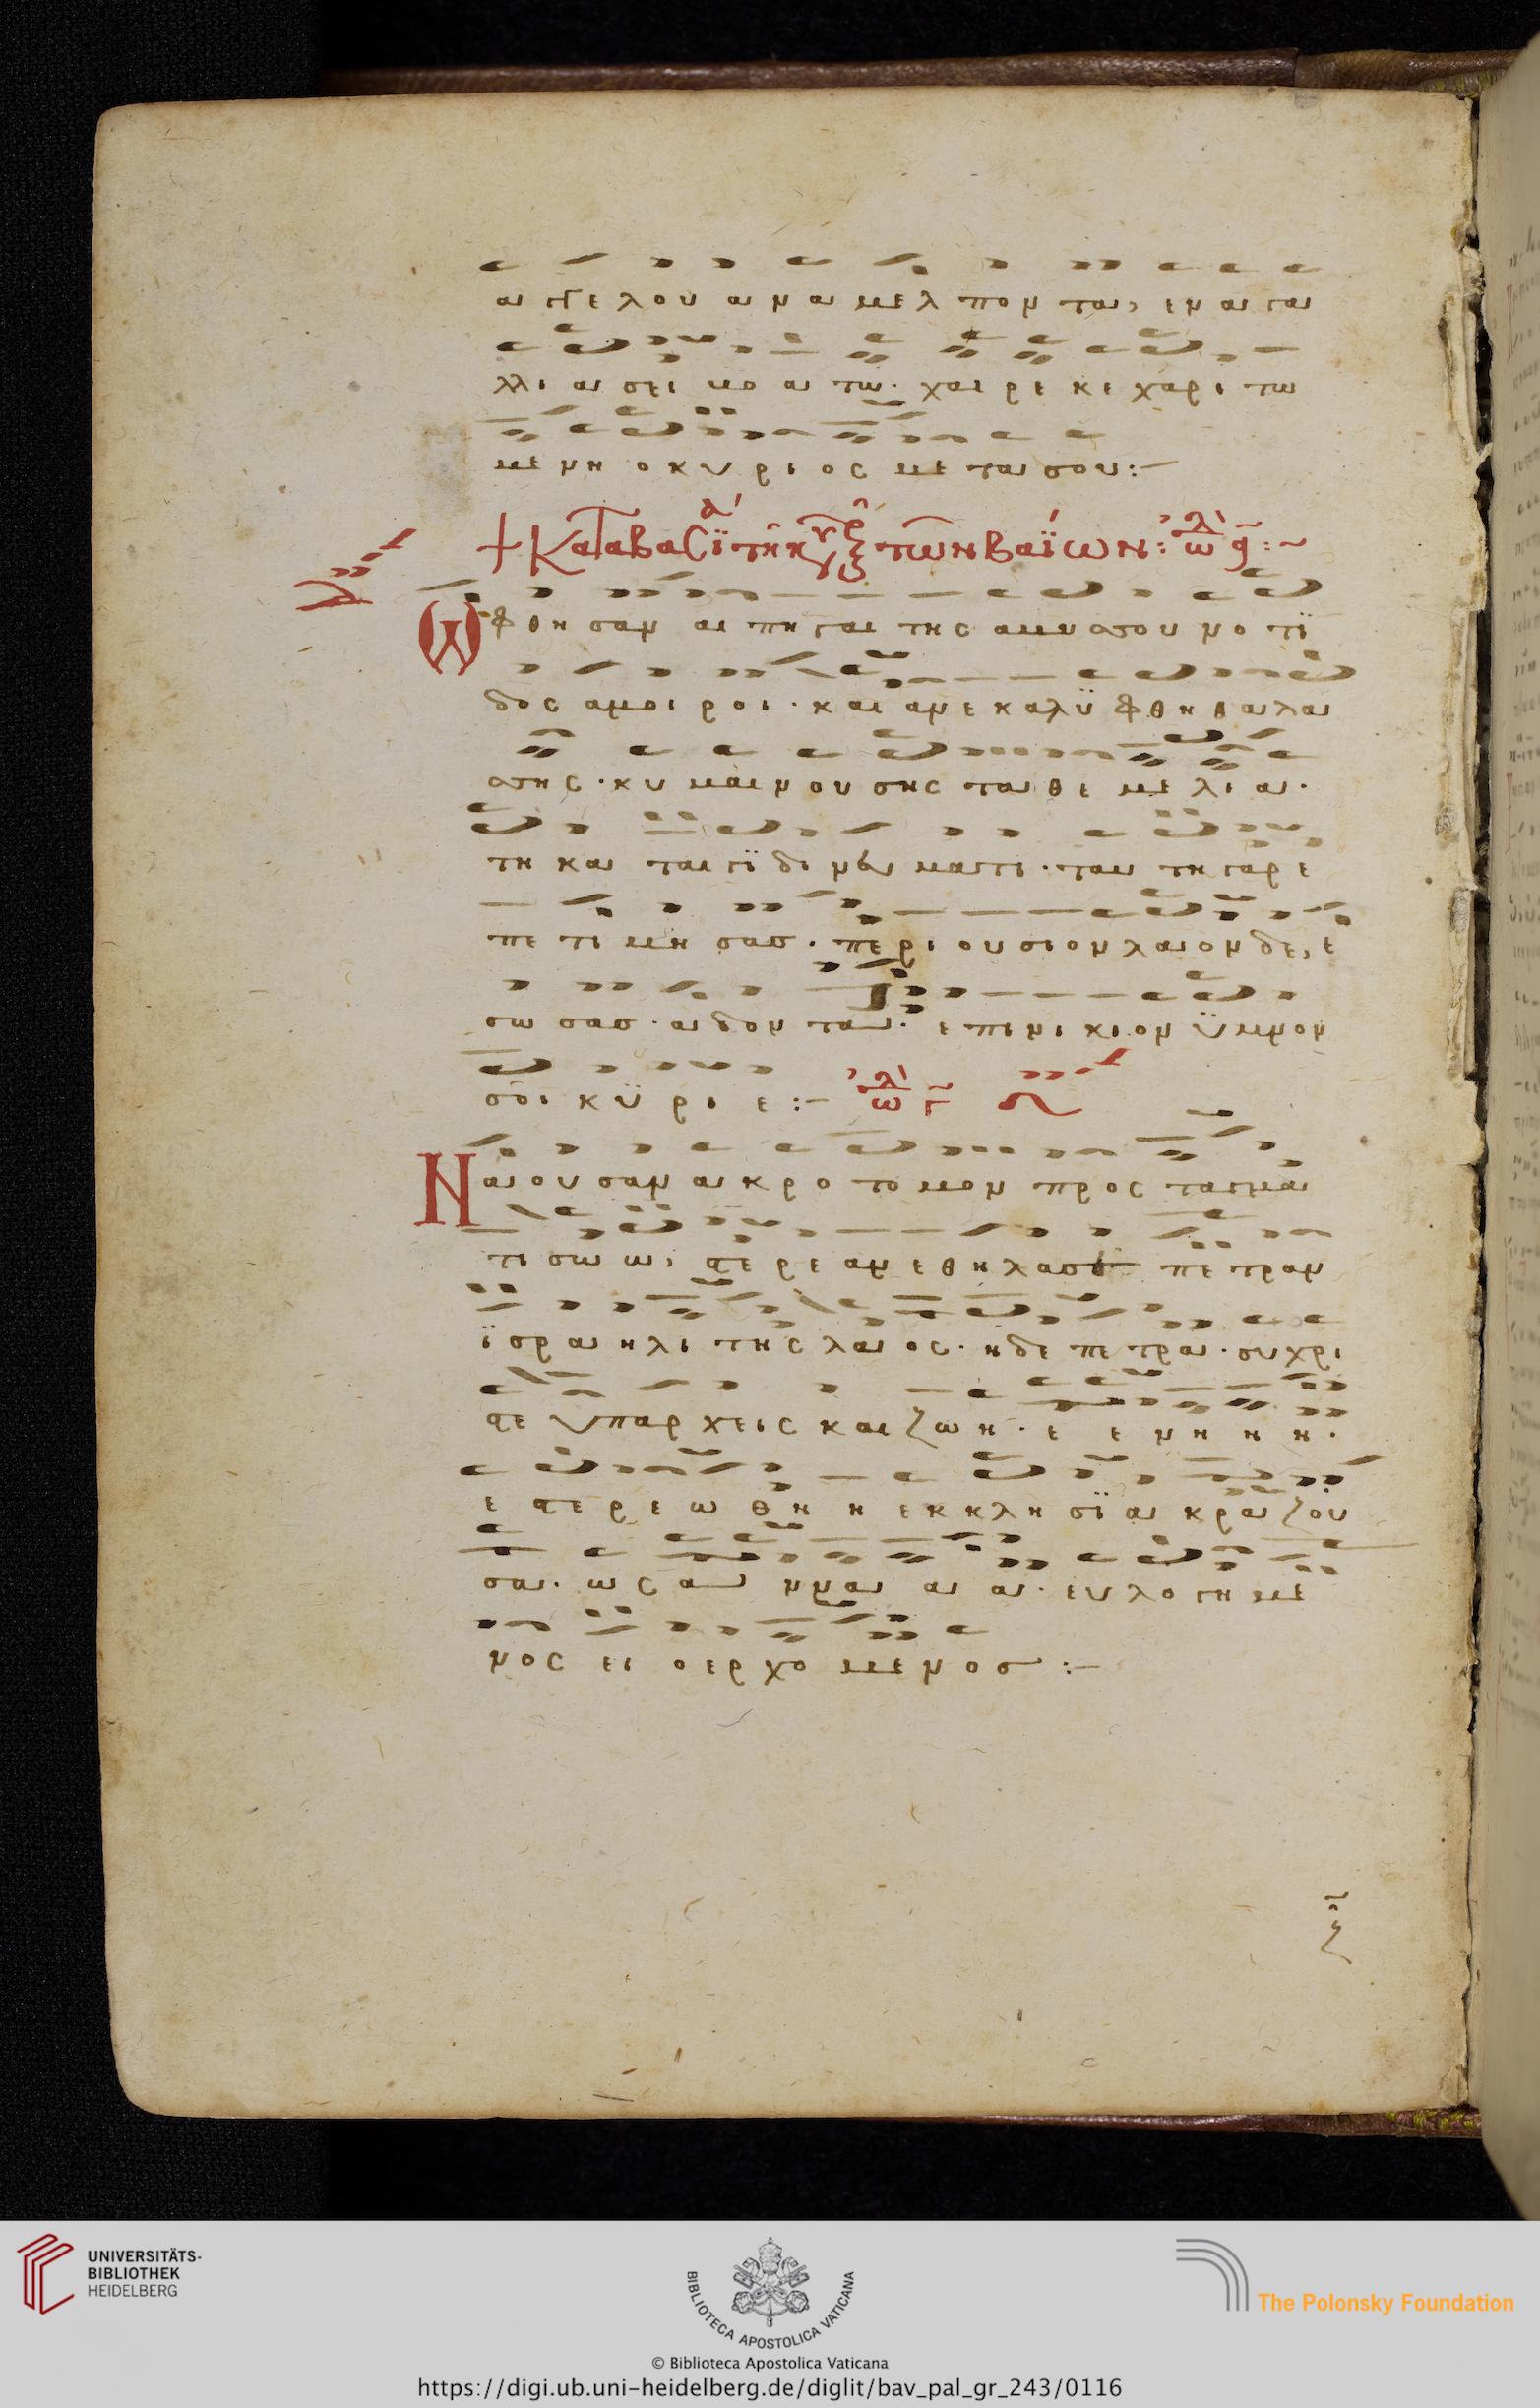 αγγελου αναμελπονται, εν αγα
λλιασει βοαται. χαιρε κεχαριτω
μενη ο κυριος μετα σου:-
+ Καταβασΐα τη κυρ των βαΐων: ωδ α:~
Ωφθησαν αι πηγαι της αβυσσου νοτΐ
δος αμοιροι. και ανεκαλϋφθη θαλα
σσης. κυμαινουσης τα θεμελια.
τη καταιγΐδι νευματι. ταυτη γαρ ε
πετιμησας. περιουσιον λαον δε, ε
σωσας. αδονταν. επινικιον ϋμνον
σοι κϋριε:- ωδ γ
Ναουσαν ακροτομον προσταγμα
τι σωω, στερεαν εθηλασε πετραν
ϊσραηλιτης λαος. η δε πετρα. συ χρι
στε υπαρχεις και ζωη. ε εν η η η.
εστερεωθη η εκκλησΐα κραζου
σα. ωσαν ννα α α. ευλογημε
νος ει ο ερχομενος:-
UNIVERSITÄTS-
BIBLIOTHEK
HEIDELBERG
BIBLIOTECA APOSTOLICA VATICANA
The Polonsky Foundation
© Biblioteca Apostolica Vaticana
https://digi.ub.uni-heidelberg.de/diglit/bav_pal_gr_243/0116